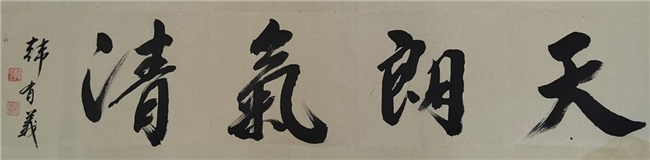 天朗氣清
韩有義